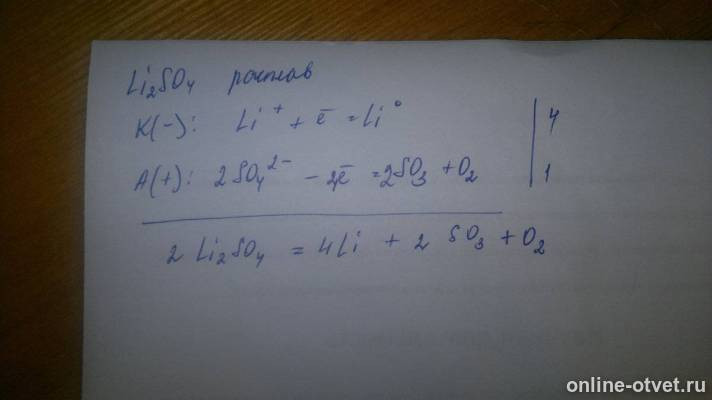 Li₂SO₄ расплав
K(-): Li⁺ + ē = Li⁰ | 4
A(+): 2SO₄²⁻ - 4ē = 2SO₃ + O₂ | 1
2 Li₂SO₄ = 4Li + 2 SO₃ + O₂
online-otvet.ru